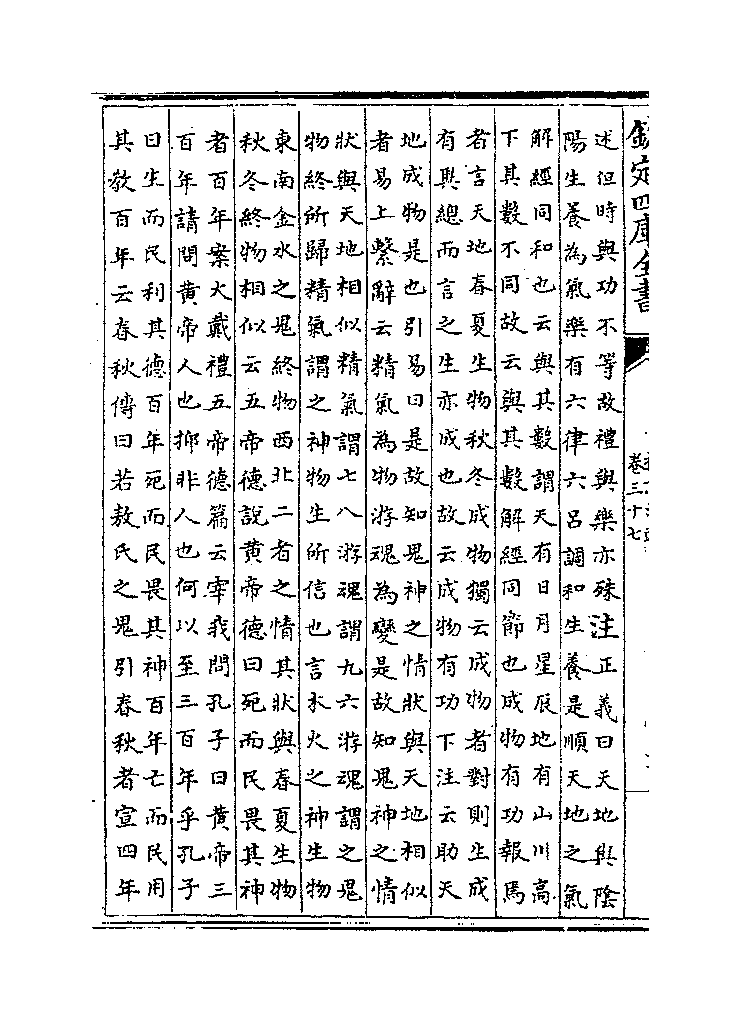 欽定四庫全書
卷三十七
述但時與功不等故禮與樂亦殊注正義曰天地與陰
陽生養為氣樂有六律六呂調和生養是順天地之氣
解經同和也云與其數謂天有日月星辰地有山川高
下其數不同故云與其數解經同節也成物有功報焉
者言天地春夏生物秋冬成物獨云成物者對則生成
有異總而言之生亦成也故云成物有功下注云助天
地成物是也引易曰是故知鬼神之情狀與天地相似
者易上繫辭云精氣為物游魂為變是故知鬼神之情
狀與天地相似精氣謂七八游魂謂九六游魂謂之鬼
物終所歸精氣謂之神物生所信也言木火之神生物
東南金水之鬼終物西北二者之情其狀與春夏生物
秋冬終物相似云五帝德說黃帝德曰死而民畏其神
者百年案大戴禮五帝德篇云宰我問孔子曰黃帝三
百年請問黃帝人也抑非人也何以至三百年乎孔子
曰生而民利其德百年死而民畏其神百年亡而民用
其敎百年云春秋傳曰若敖氏之鬼引春秋者宣四年